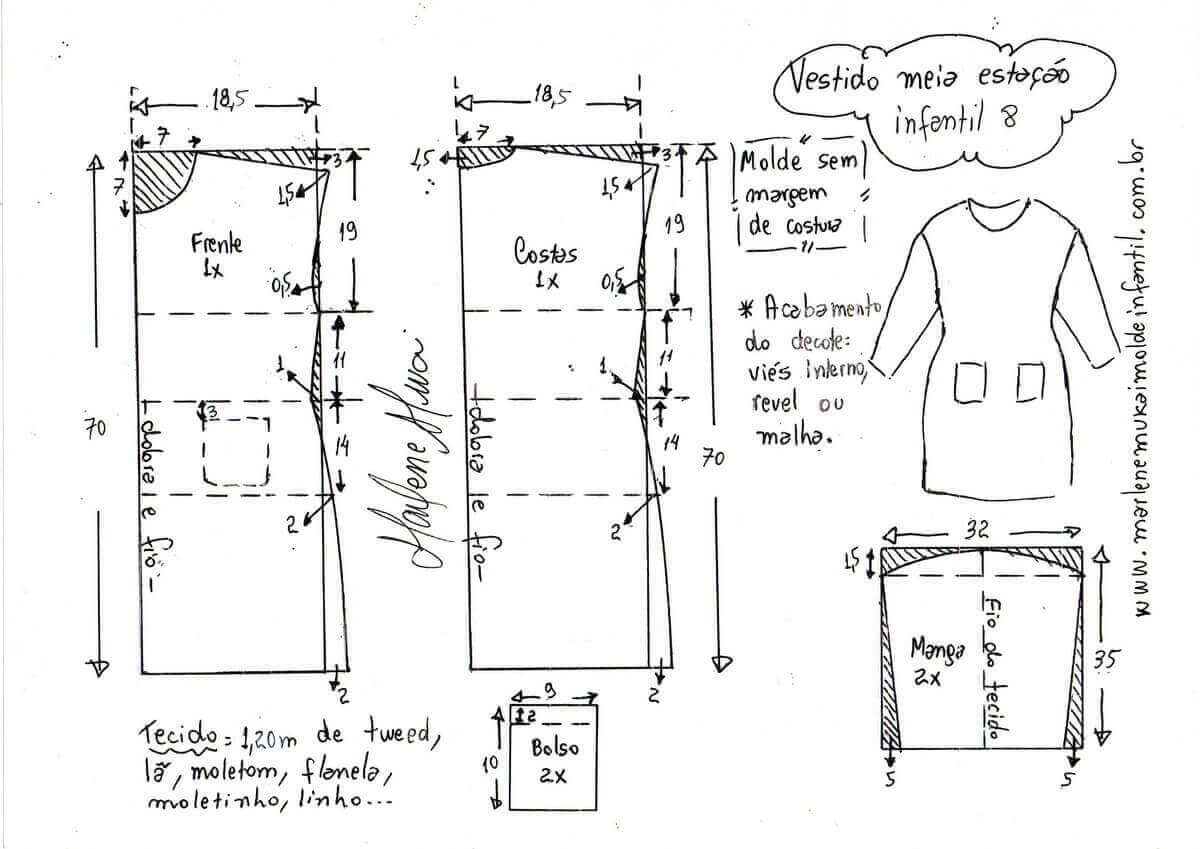 Vestido meia estação
infantil 8
18,5
7
3
7
1,5
19
Frente
1x
0,5
11
1
3
14
70
dobra e fio
2
2
18,5
7
3
1,5
1,5
19
Costas
1x
0,5
11
1
14
70
dobra e fio
2
2
Molde sem
margem
de costura
* Acabamento
do decote:
viés interno,
revel ou
malha.
www.marlenemukaimoldeinfantil.com.br
32
1,5
Manga
2x
Fio do tecido
35
5
5
9
2
10
Bolso
2x
Tecido = 1,20m de tweed,
lã, moletom, flanela,
moletinho, linho...